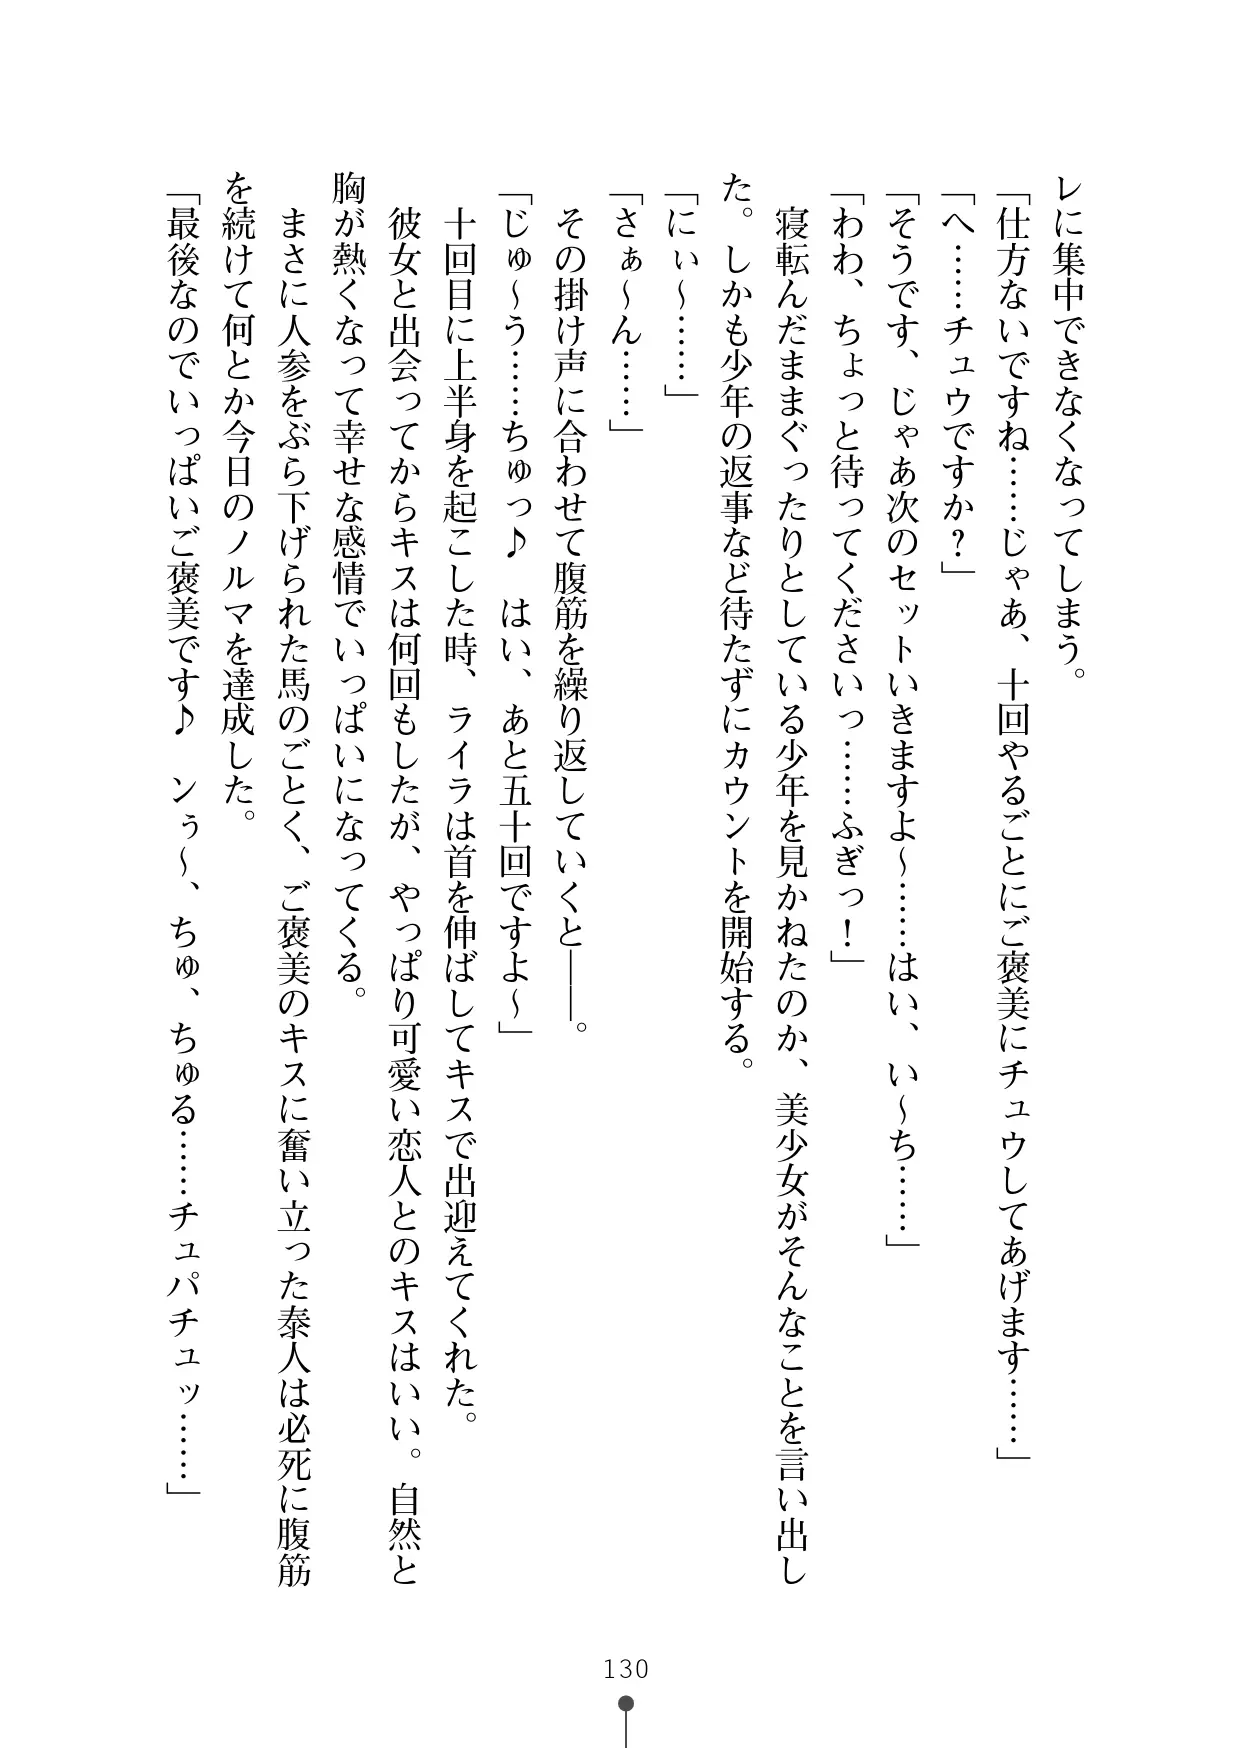 レに集中できなくなってしまう。
「仕方ないですね……じゃあ、十回やるごとにご褒美にチュウしてあげます……」
「へ……チュウですか？」
「そうです、じゃあ次のセットいきますよ〜……はい、い〜ち……」
「わわ、ちょっと待ってくださいっ……ふぎっ！」
　寝転んだままぐったりとしている少年を見かねたのか、美少女がそんなことを言い出し
た。しかも少年の返事など待たずにカウントを開始する。
「にぃ〜……」
「さぁ〜ん……」
　その掛け声に合わせて腹筋を繰り返していくと――。
「じゅ〜う……ちゅっ♪　はい、あと五十回ですよ〜」
　十回目に上半身を起こした時、ライラは首を伸ばしてキスで出迎えてくれた。
　彼女と出会ってからキスは何回もしたが、やっぱり可愛い恋人とのキスはいい。自然と
胸が熱くなって幸せな感情でいっぱいになってくる。
　まさに人参をぶら下げられた馬のごとく、ご褒美のキスに奮い立った泰人は必死に腹筋
を続けて何とか今日のノルマを達成した。
「最後なのでいっぱいご褒美です♪　ンぅ〜、ちゅ、ちゅる……チュパチュッ……」
130